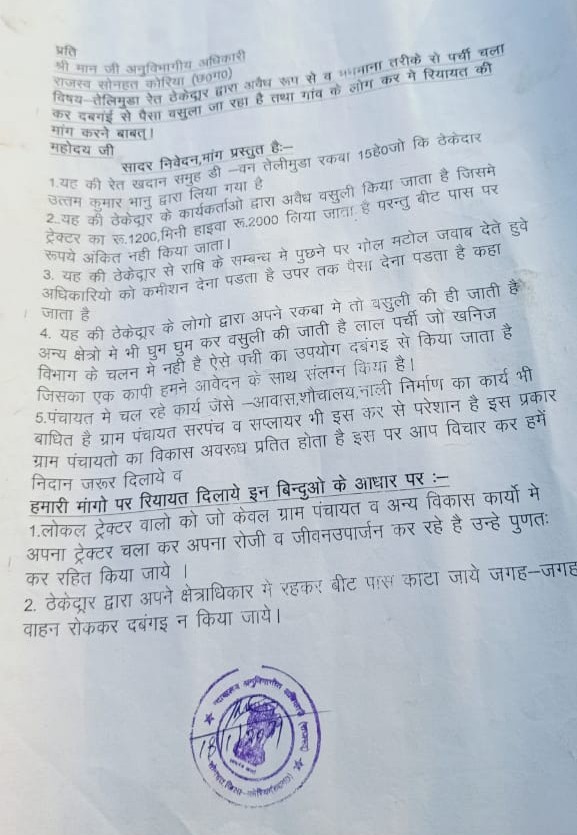 प्रति
श्री मान जी अनुविभागीय अधिकारी
राजस्व सोनहत कोरिया (छ0ग0)
विषय–तेलिमुडा रेत ठेकेदार द्वारा अवैध रूप से व मनमाना तरीके से पर्ची चला
कर दबगंई से पैसा वसुला जा रहा है तथा गांव के लोग कर मे रियायत की
मांग करने बाबत्।
महोदय जी
सादर निवेदन,मांग प्रस्तुत है:–
1.यह की रेत खदान समुह डी –वन तेलीमुडा रकबा 15हे0जो कि ठेकेदार
उत्तम कुमार भानु द्वारा लिया गया है
2.यह की ठेकेदार के कार्यकर्ताओ द्वारा अवैध वसुली किया जाता है जिसमे
ट्रेक्टर का रू.1200,मिनी हाइवा रू.2000 लिया जाता है परन्तु बीट पास पर
रूपये अंकित नही किया जाता।
3. यह की ठेकेदार से राषि के सम्बन्ध मे पुछने पर गोल मटोल जवाब देते हुवे
अधिकारियो को कमीशन देना पडता है उपर तक पैसा देना पडता है कहा
जाता है
4. यह की ठेकेदार के लोगो द्वारा अपने रकबा मे तो वसुली की ही जाती है
अन्य क्षेत्रो मे भी घुम घुम कर वसुली की जाती है लाल पर्ची जो खनिज
विभाग के चलन मे नही है ऐसे पर्ची का उपयोग दबंगइ से किया जाता है
जिसका एक कापी हमने आवेदन के साथ संलग्न किया है।
5.पंचायत मे चल रहे कार्य जेसे –आवास,शौचालय,नाली निर्माण का कार्य भी
बाधित है ग्राम पंचायत सरपंच व सप्लायर भी इस कर से परेशान है इस प्रकार
ग्राम पंचायतो का विकास अवरूध प्रतित होता है इस पर आप विचार कर हमें
निदान जरूर दिलाये व
हमारी मांगो पर रियायत दिलाये इन बिन्दुओ के आधार पर :–
1.लोकल ट्रेक्टर वालो को जो केवल ग्राम पंचायत व अन्य विकास कार्यो मे
अपना ट्रेक्टर चला कर अपना रोजी व जीवनउपार्जन कर रहे है उन्हे पुणतः
कर रहित किया जाये ।
2. ठेकेदार द्वारा अपने क्षेत्राधिकार मे रहकर बीट पास काटा जाये जगह–जगह
वाहन रोककर दबंगइ न किया जाये।